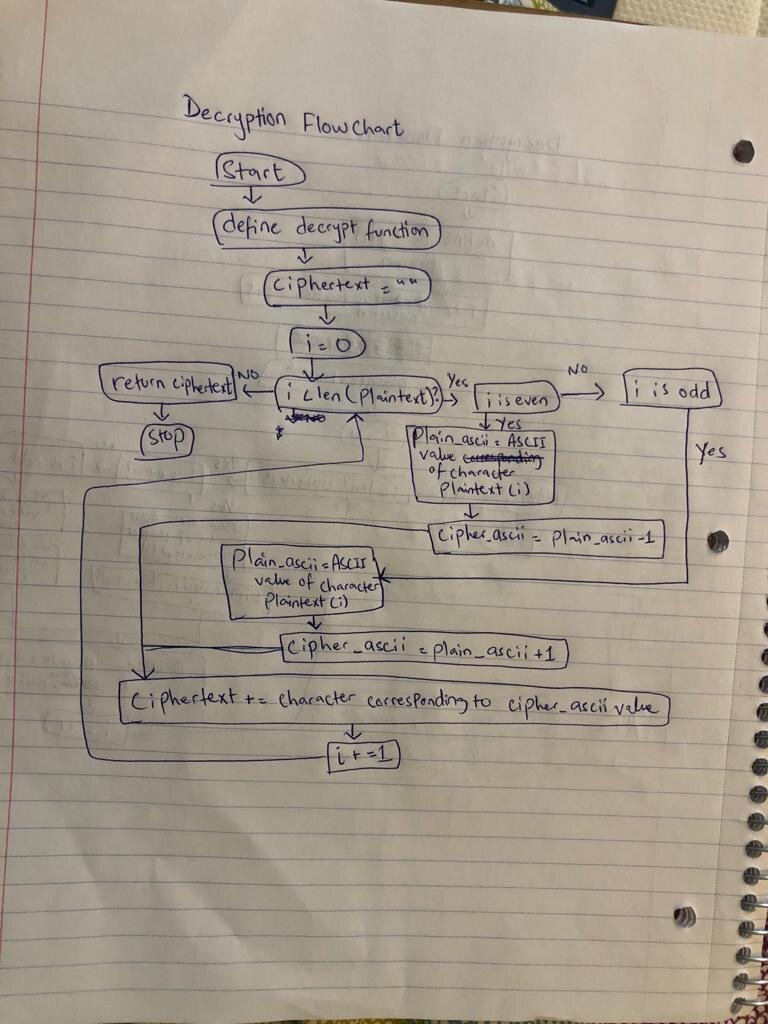 Decryption Flowchart
Start
define decrypt function
Ciphertext = ""
i = 0
return ciphertext
NO
i < len(plaintext)?
Yes
i is even
NO
i is odd
Stop
Yes
Yes
Plain_ascii = ASCII
value
of character
Plaintext(i)
Cipher_ascii = plain_ascii-1
Plain_ascii = ASCII
value of character
Plaintext(i)
Cipher_ascii = plain_ascii+1
Ciphertext += character corresponding to cipher_ascii value
i+=1